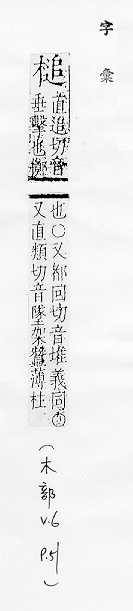 字彙
槌
直追切音
垂擊也擲
也○又都回切音堆義同去
又直類切音墜架蠶薄柱
(木部 V.6 P.51)